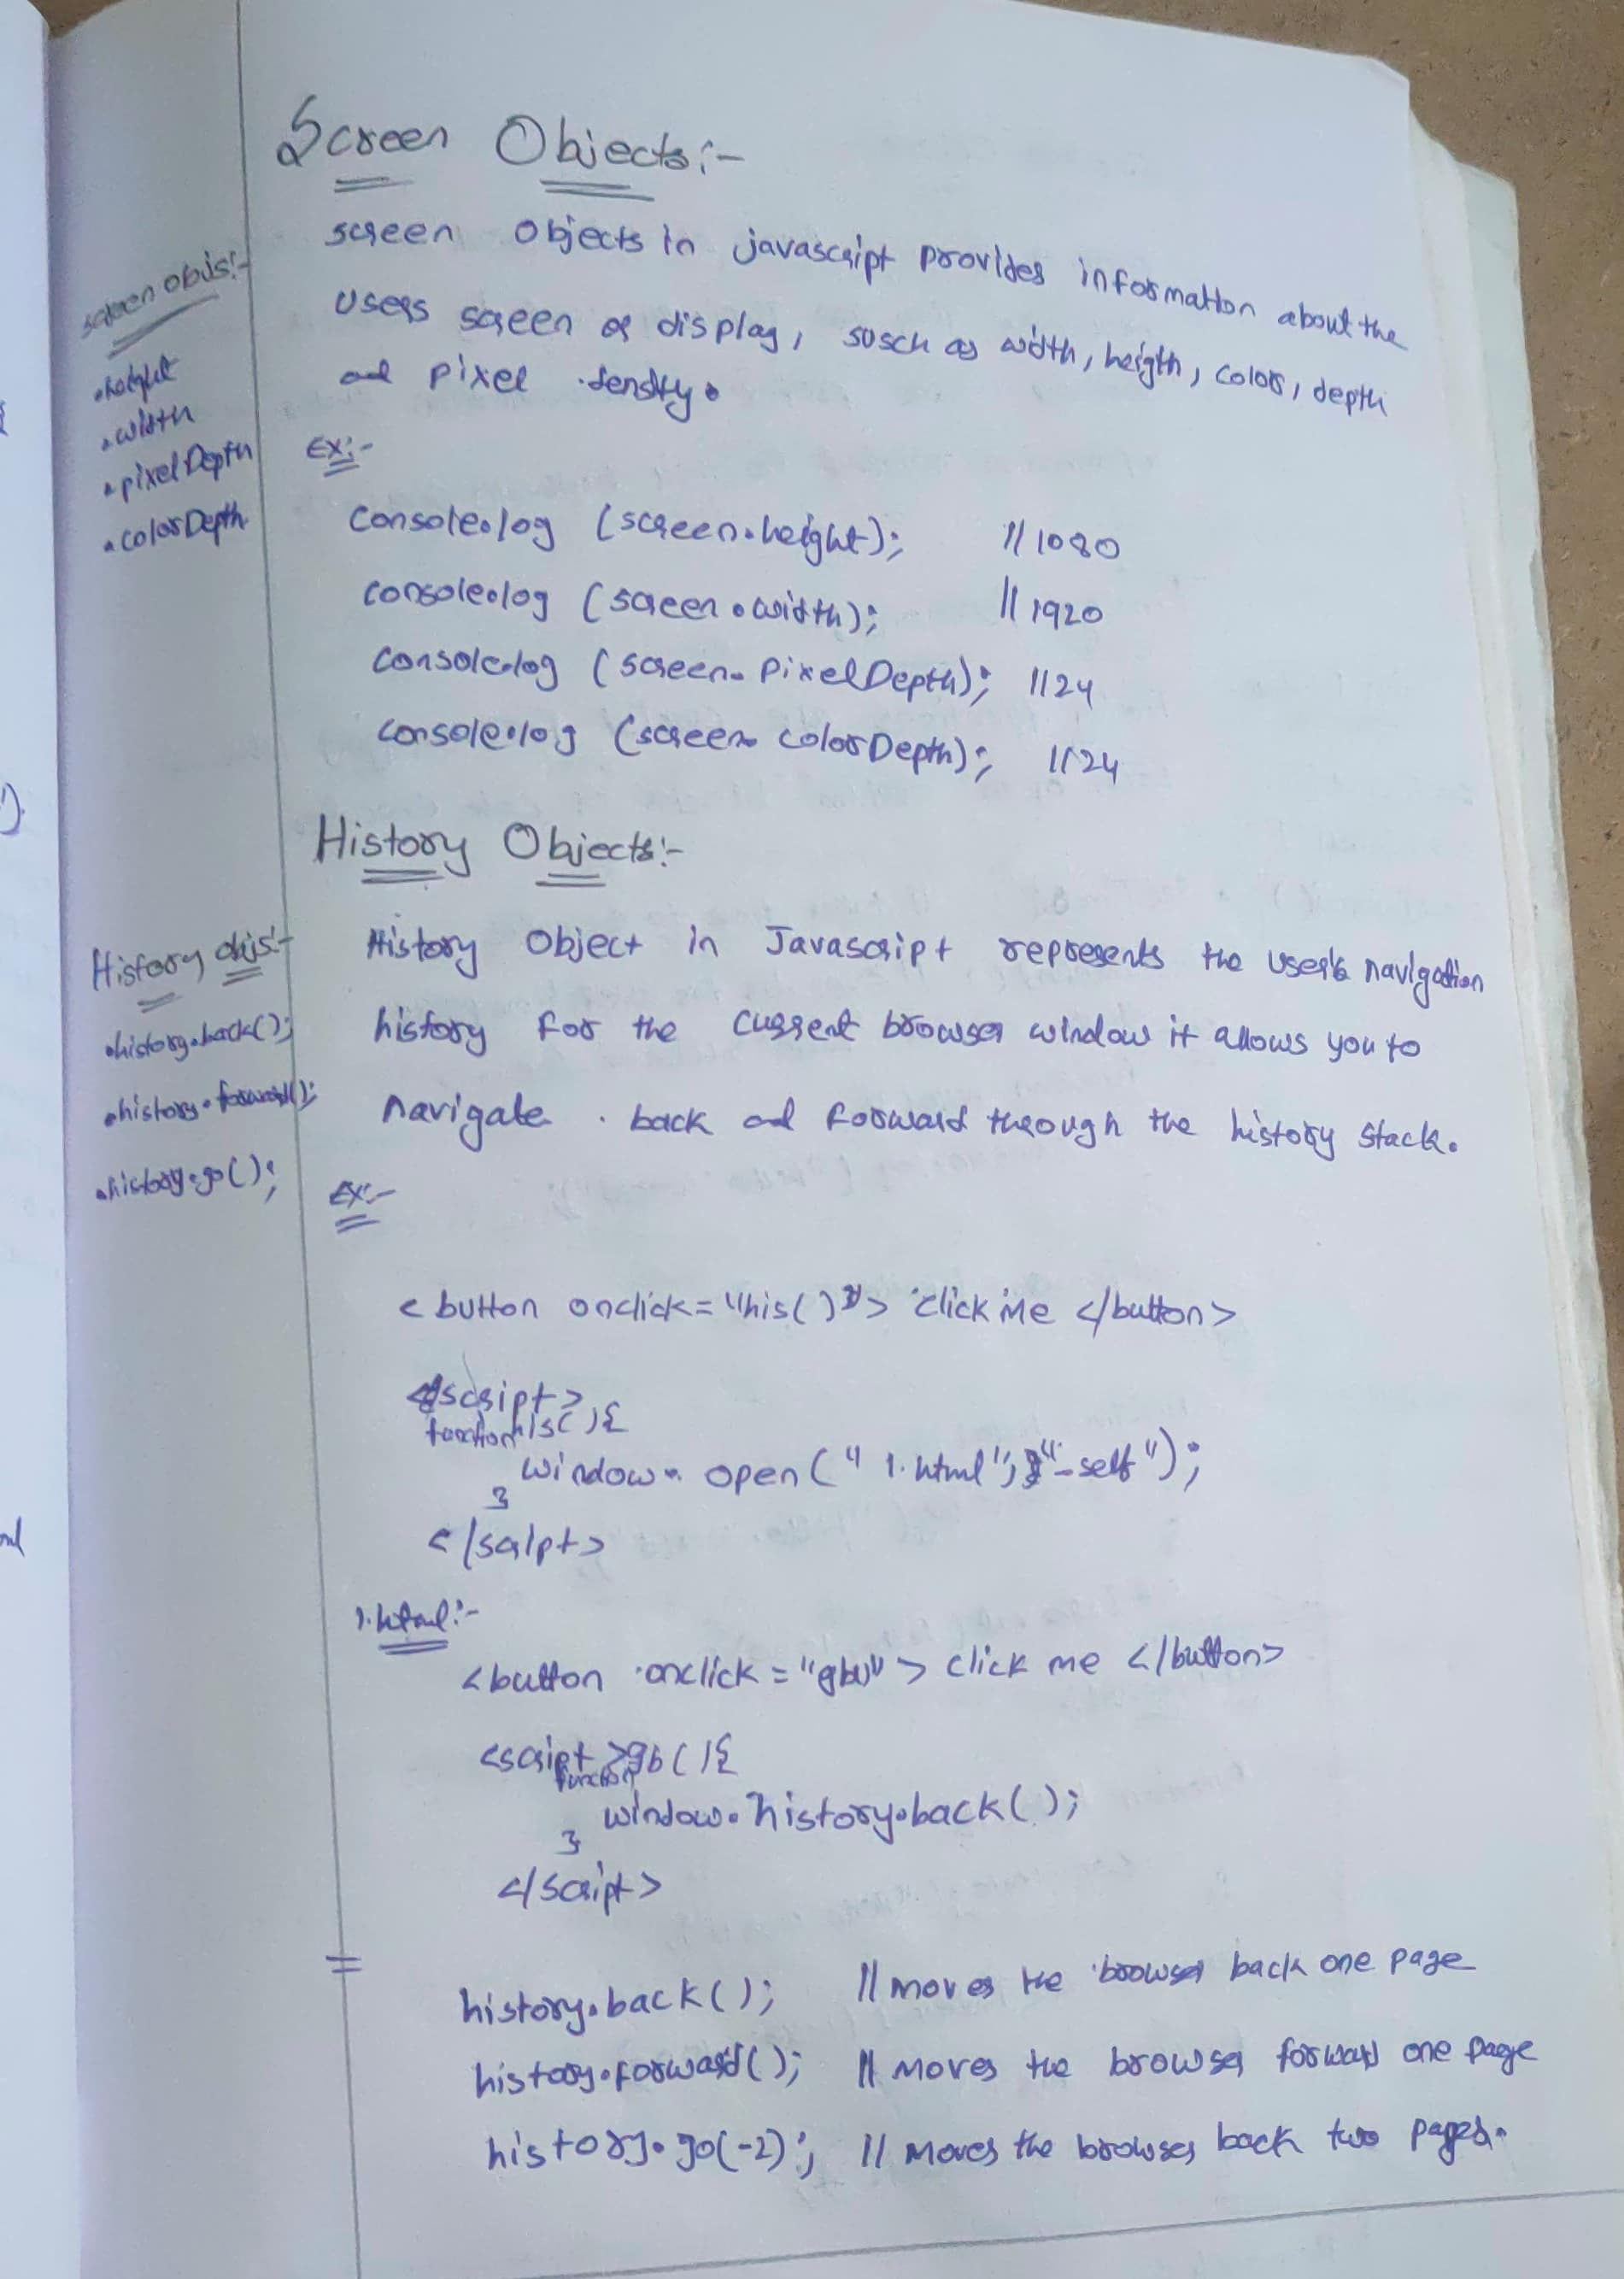 Screen Objects:-
screen Objects in javascript provides information about the
Users screen or display, susch as width, heigth, color, depth
and pixel density.
Ex:-
console.log (screen.height); //1080
console.log (screen.width); //1920
console.log (screen.PixelDepth); //24
console.log (screen.colorDepth); //24
screen objs:-
.height
.width
.pixelDepth
.colorDepth
History Objects:-
History Object in Javascript represents the user's navigation
history for the current browser window it allows you to
navigate back and forward through the history stack.
History objs:-
.history.back();
.history.forward();
.history.go();
Ex:-
<button onclick="his()"> click me </button>
<script>
function his(){
window.open("1.html", "_self");
}
</script>
1.html:-
<button onclick="gb()"> click me </button>
<script>
function gb(){
window.history.back();
}
</script>
=
history.back(); //moves the browser back one page
history.forward(); //moves the browser forward one page
history.go(-2); //moves the browser back two pages.